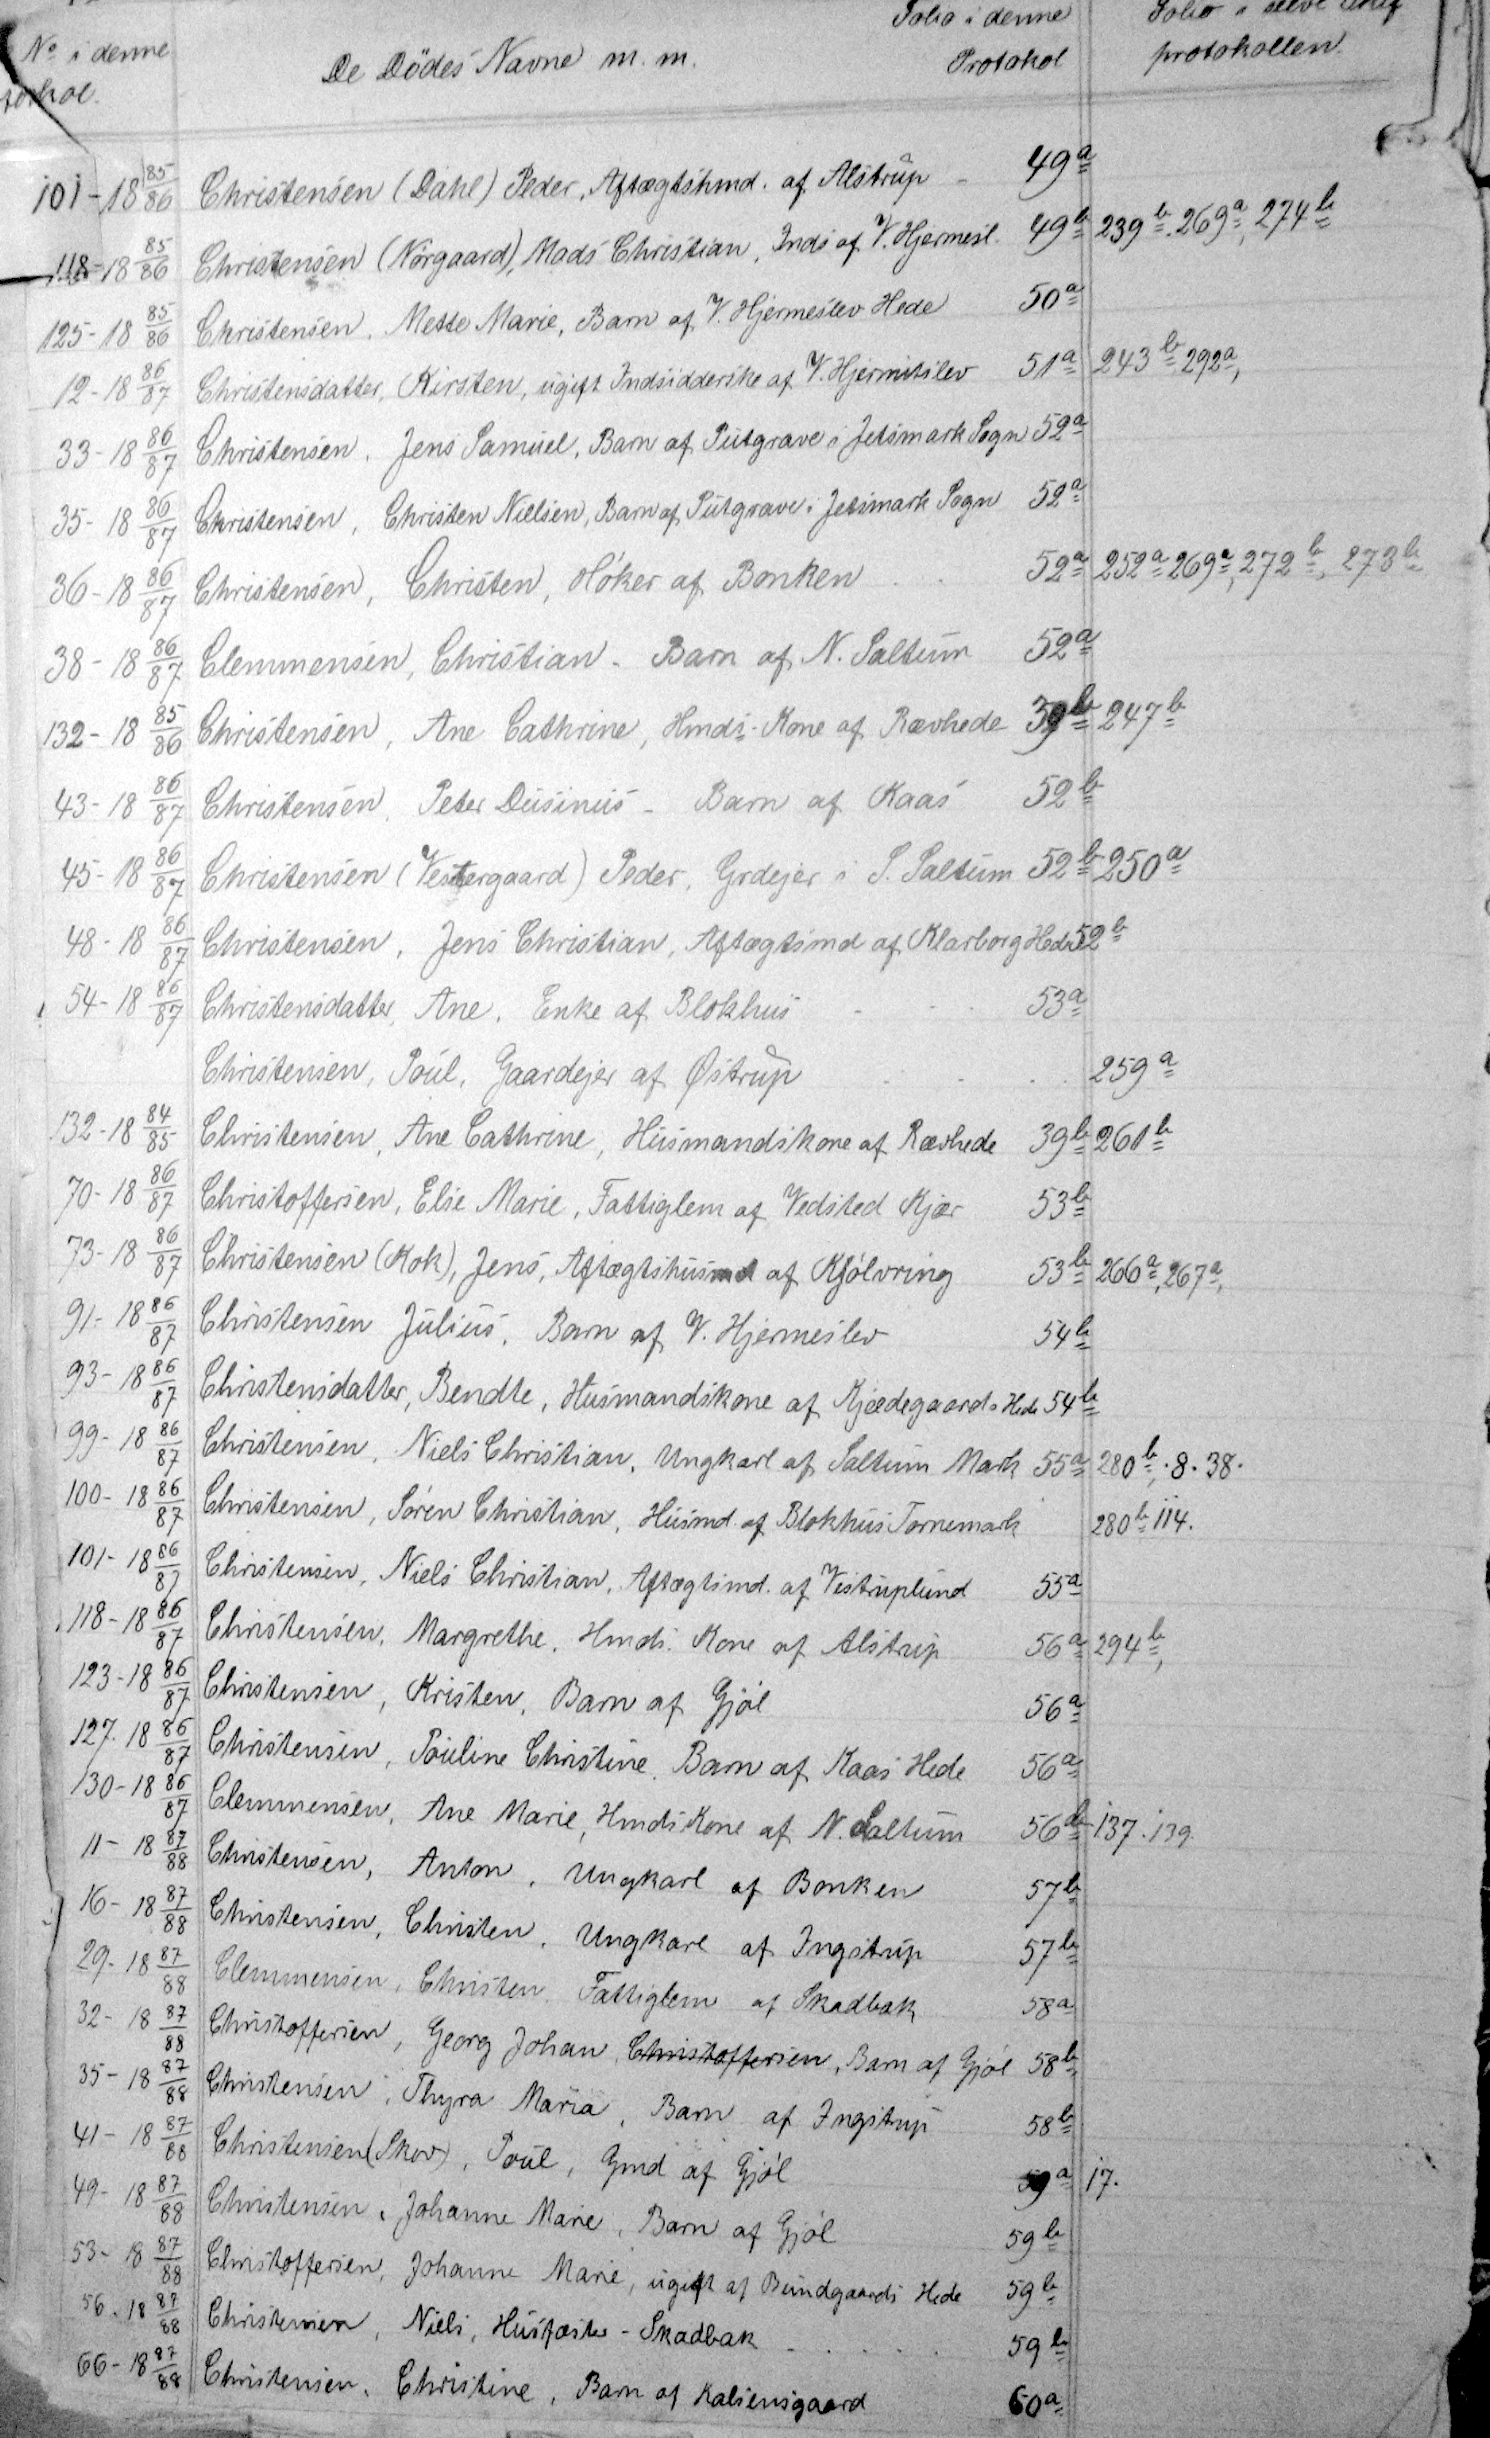 No i denne De Dödes Navne m. m. Folio i denne Folio i selve
Protokol protokollen.
101-18 85/86 Christensen (Dahl) Peder, Aftægtshmd. af Alstrup - 49a
118-18 85/86 Christensen (Nörgaard), Mads Christian, Inds af V. Hjermesl. 49b 239b. 269a, 274b
125-18 85/86 Christensen, Mette Marie, Barn af V. Hjermeslev Hede 50a
12-18 86/87 Christensdatter, Kirsten, ugift Indsidderske af V. Hjermitslev 51a 243b 292a,
33-18 86/87 Christensen, Jens Samuel, Barn af Putgrave i Jetsmark Sogn 52a
35-18 86/87 Christensen, Christen Nielsen, Barn af Putgrave i Jetsmark Sogn 52a
36-18 86/87 Christensen, Christen, Höker af Bonken 52a 252a 269a, 272b, 273b
38-18 86/87 Clemmensen, Christian - Barn af N. Saltum 52a
132-18 85/86 Christensen, Ane Cathrine, Hmds-Kone af Rævhede 39b 247b
43-18 86/87 Christensen, Peter Dusinus - Barn af Kaas 52b
45-18 86/87 Christensen (Vestergaard) Peder, Grdejer i S. Saltum 52b 250a
48-18 86/87 Christensen, Jens Christian, Aftægtsmd af Klarborg Hede 52b
54-18 86/87 Christensdatter, Ane, Enke af Blokhus 53a
Christensen, Poul, Gaardejer af Østrup 259a
132-18 84/85 Christensen, Ane Cathrine, Husmandskone af Rævhede 39b 261b
70-18 86/87 Christoffersen, Else Marie, Fattiglem af Vedsted Kjær 53b
73-18 86/87 Christensen (Kok), Jens, Aftægtshusmd af Kjölvring 53b 266a, 267a,
91-18 86/87 Christensen Julius, Barn af V. Hjermeslev 54b
93-18 86/87 Christensdatter, Bendte, Husmandskone af Kjædegaards Hede 54b
99-18 86/87 Christensen, Niels Christian, Ungkarl af Saltum Mark 55a 280b, 8. 38.
100-18 86/87 Christensen, Sören Christian, Husmd. af Blokhus Tornemark 280b 114.
101-18 86/87 Christensen, Niels Christian, Aftægtsmd. af Vestruplund 55a
118-18 86/87 Christensen, Margrethe, Hmds. Kone af Alstrup 56a 294b,
123-18 86/87 Christensen, Kristen, Barn af Gjöl 56a
127. 18 86/87 Christensen, Pouline Christine, Barn af Kaas Hede 56a
130-18 86/87 Clemmensen, Ane Marie, Hmds Kone af N. Saltum 56b 137. 139.
11-18 87/88 Christensen, Anton, Ungkarl af Bonken 57b
16-18 87/88 Christensen, Christen, Ungkarl af Ingstrup 57b
29-18 87/88 Clemmensen, Christen, Fattiglem af Skadbak 58a
32-18 87/88 Christoffersen, Georg Johan Christoffersen, Barn af Gjöl 58b
35-18 87/88 Christensen, Thyra Maria, Barn af Ingstrup 58b
41-18 87/88 Christensen (Skov), Poul, Gmd af Gjöl 59a 17.
49-18 87/88 Christensen, Johanne Marie, Barn af Gjöl 59b
53-18 87/88 Christoffersen, Johanne Marie, ugift af Bundgaards Hede 59b
56-18 87/88 Christensen, Niels, Husfæster - Skadbak 59b
66-18 87/88 Christensen, Christine, Barn af Kalsensgaard 60a